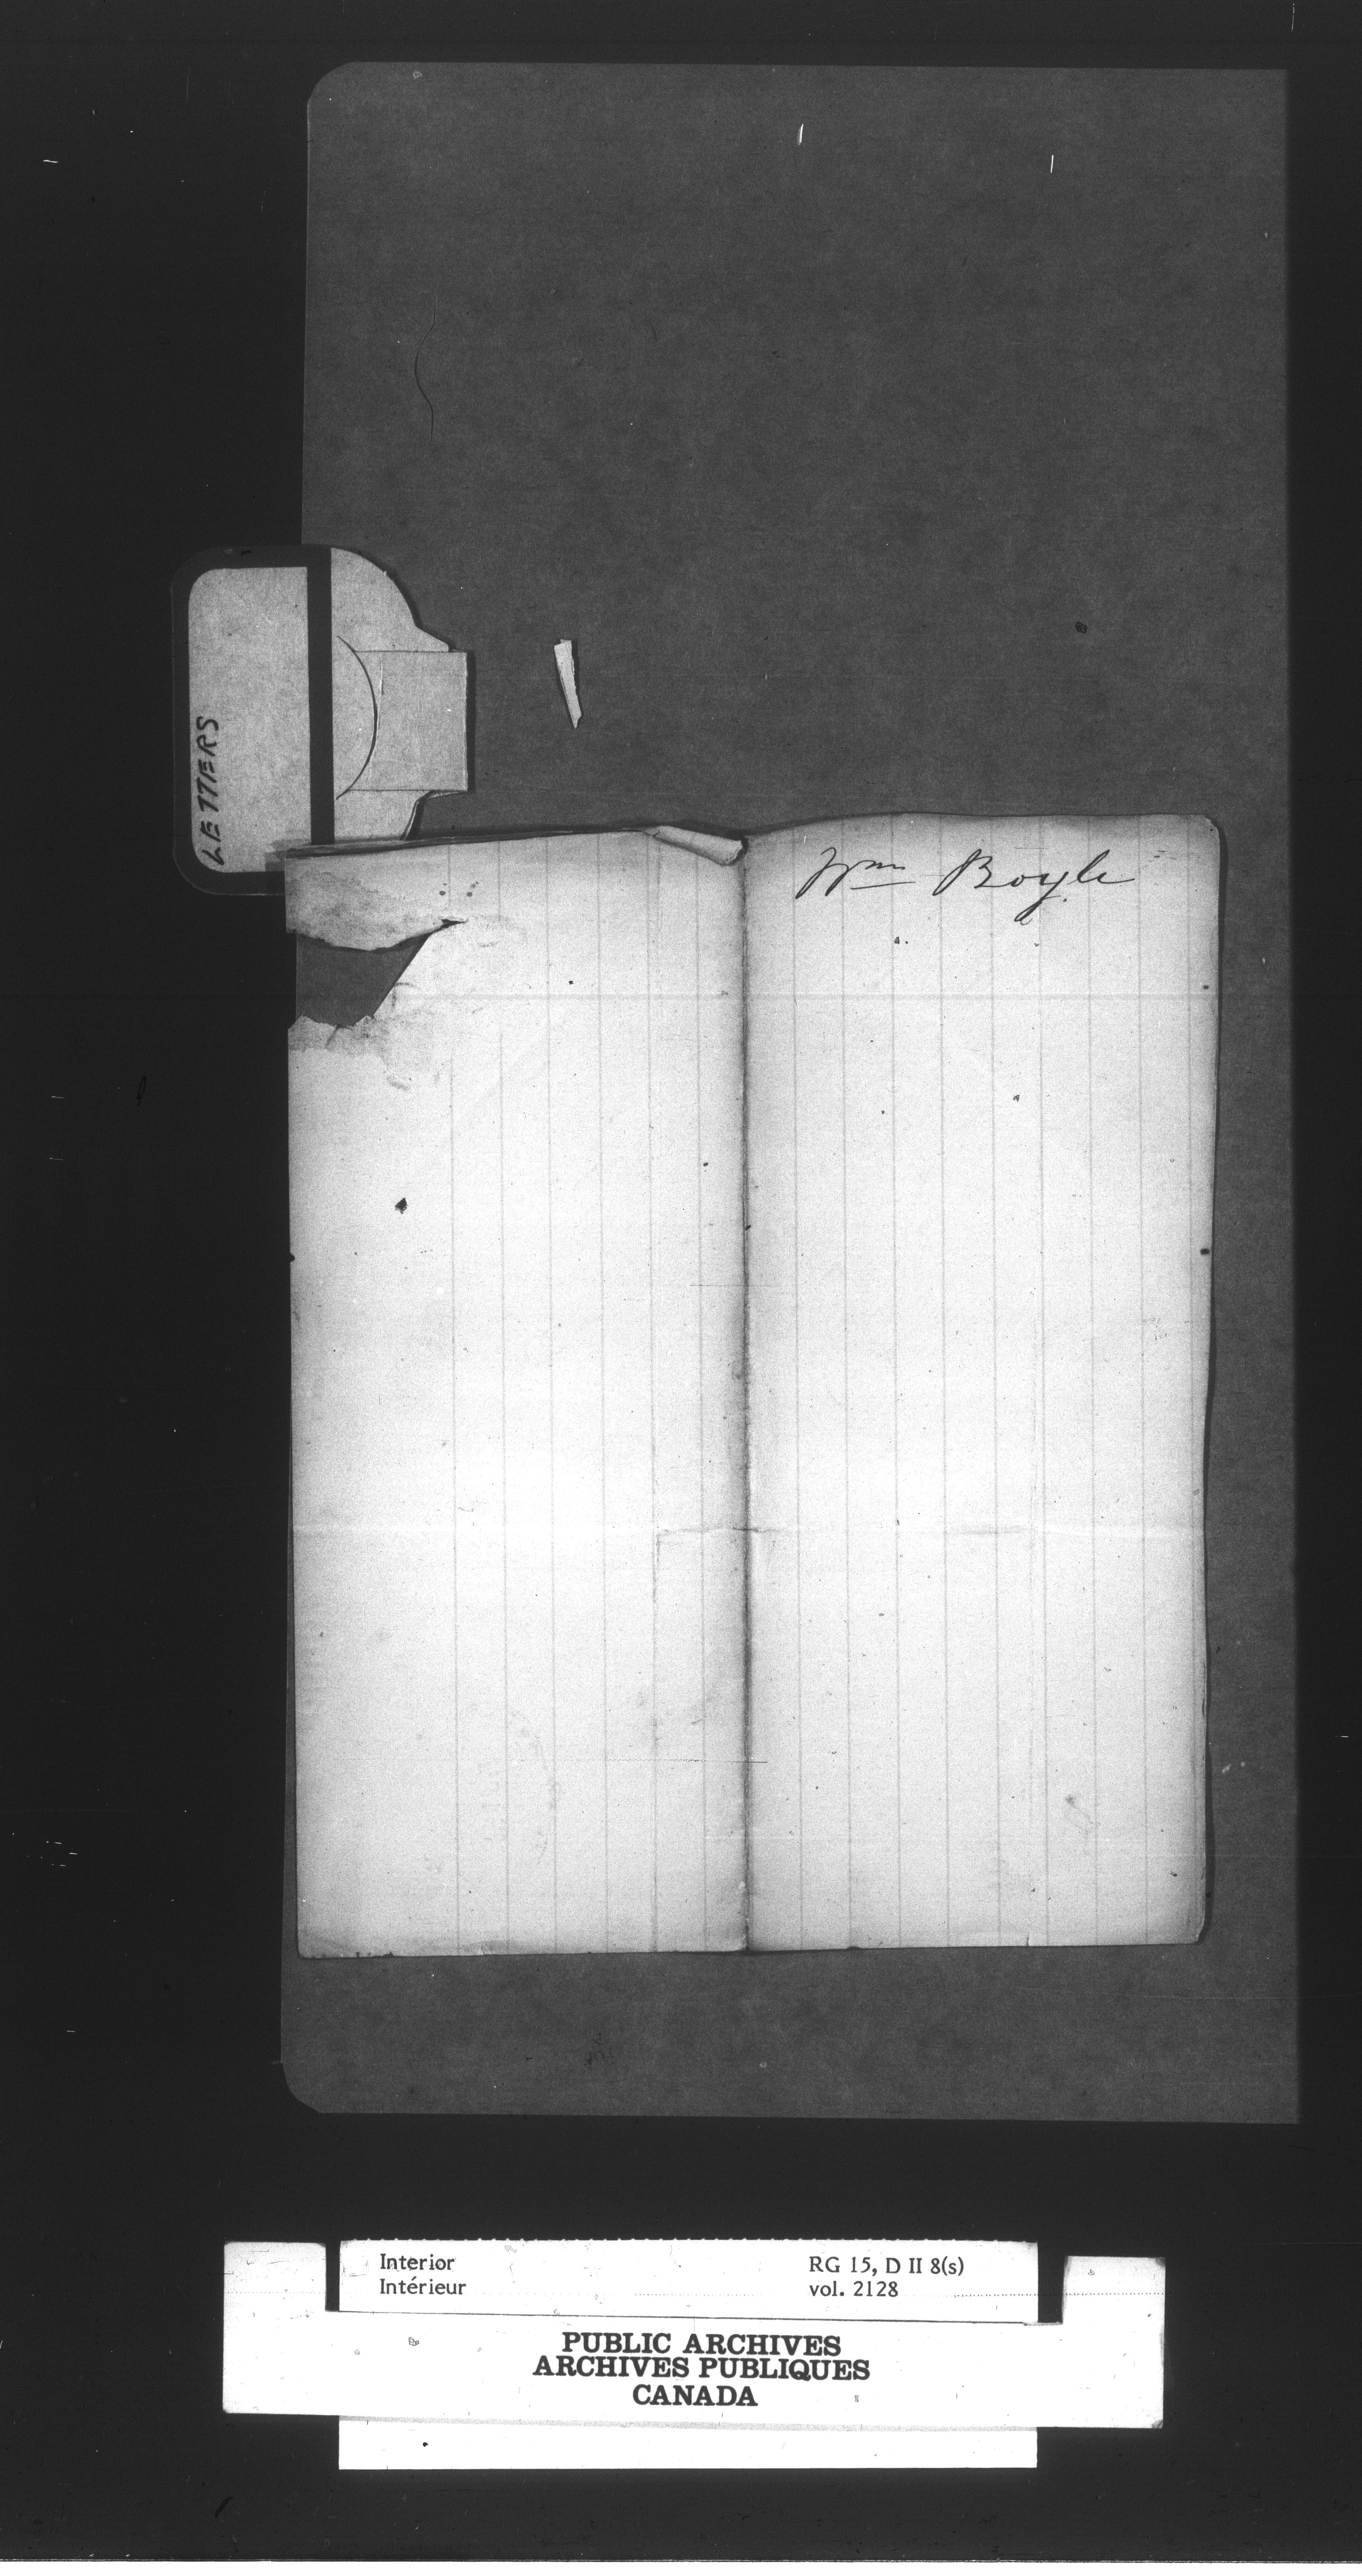 LETTERS
Wm Boyle
Interior
Intérieur
RG 15, D II 8(s)
vol. 2128
PUBLIC ARCHIVES
ARCHIVES PUBLIQUES
CANADA